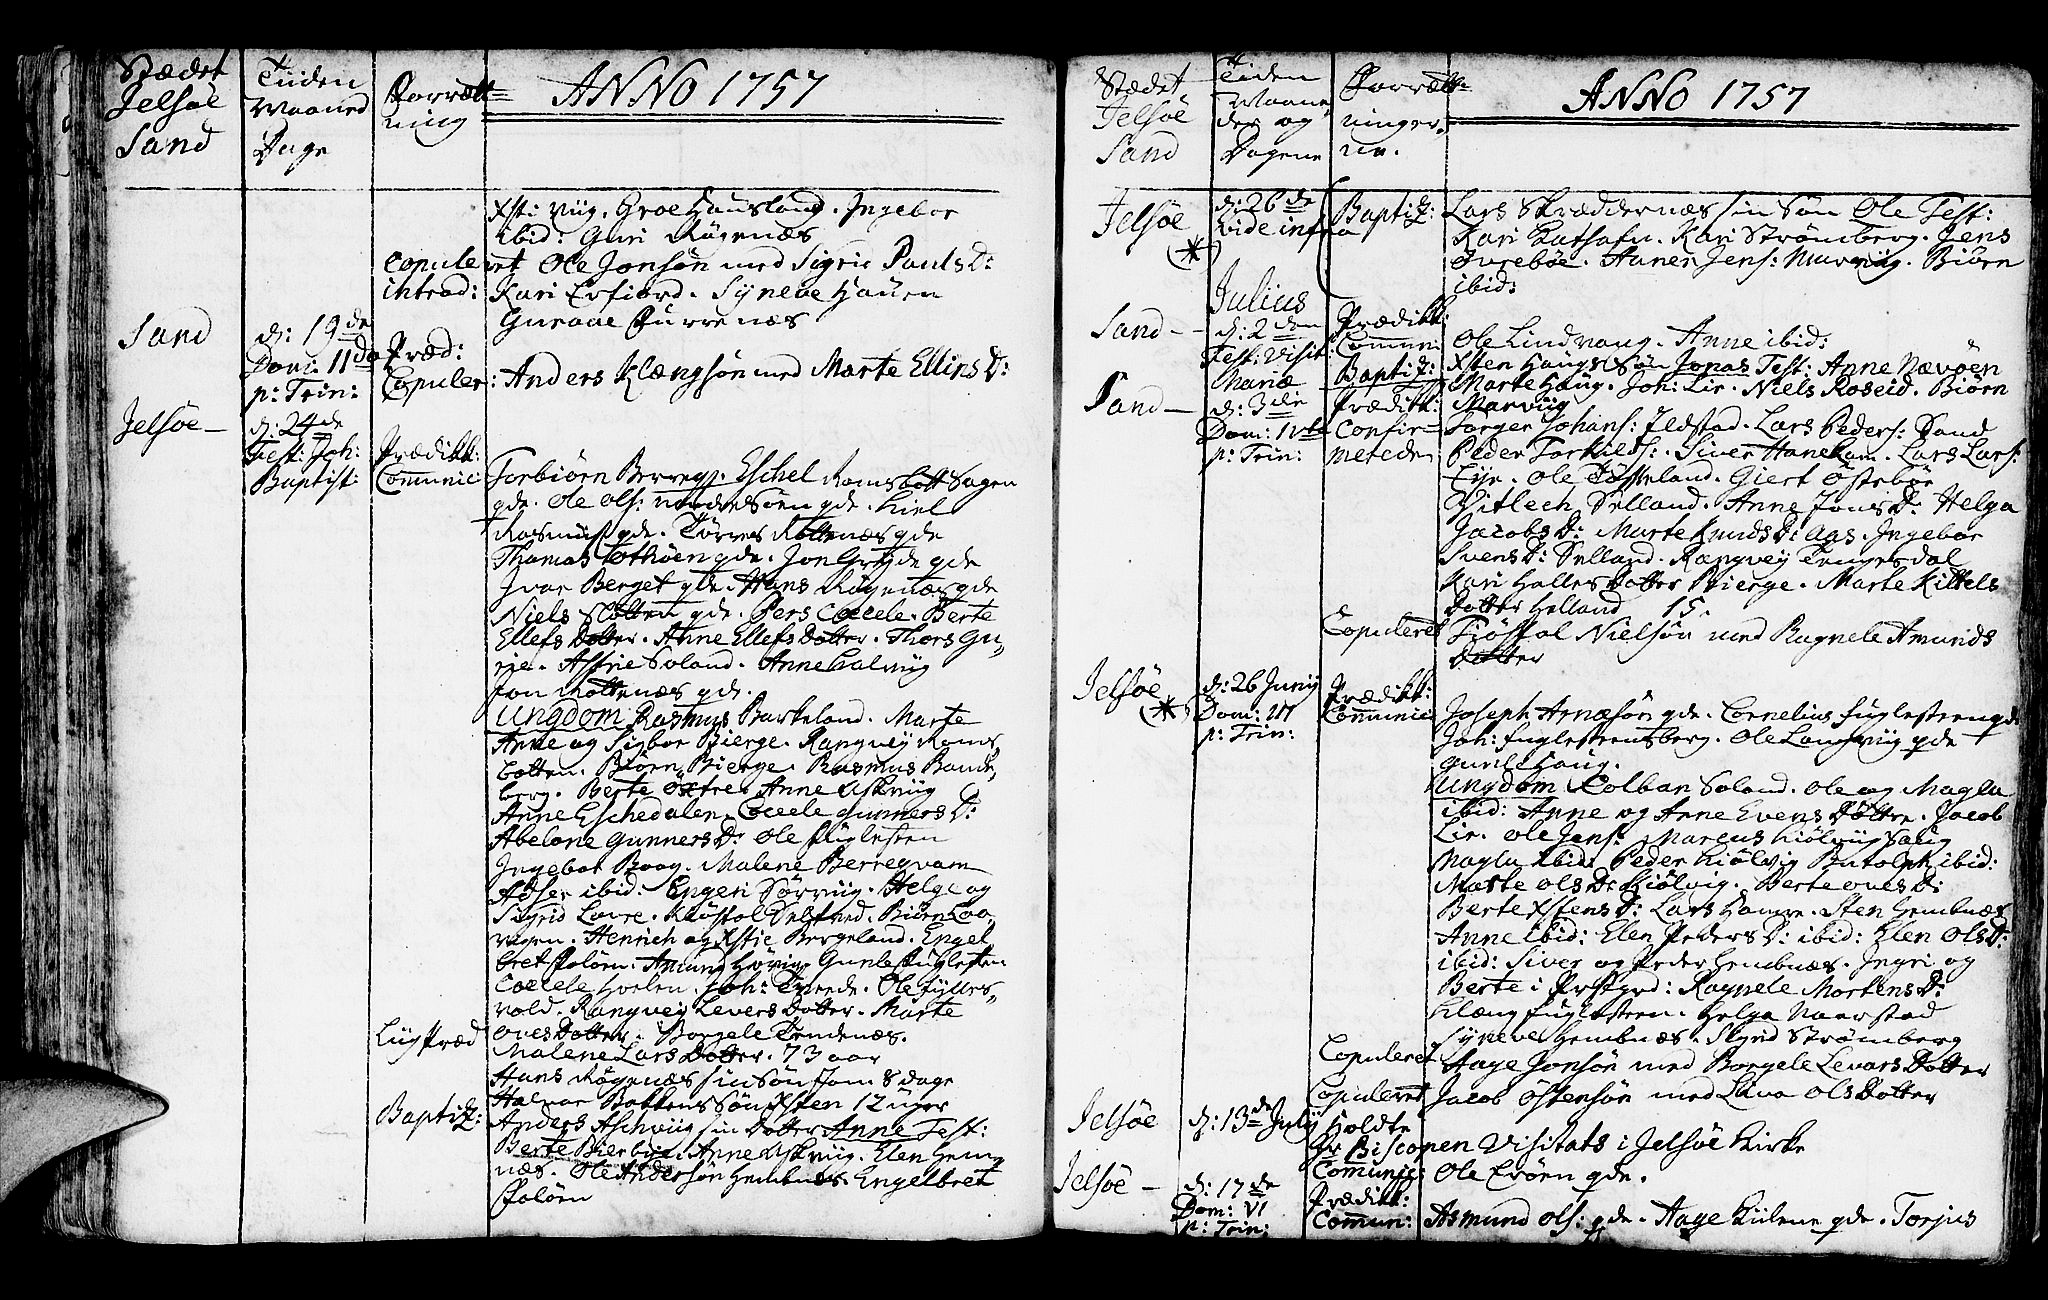 Stædet
Jelsøe
Sand
Tiiden
Maaned
Dage
Forrætt=
ning
ANNO 1757
Xsti viig. Groe Hausland. Ingebor
ibid: Guri Røgenæs
Copuleret Ole Jonsøn med Sigrie Pauls D:
introd: Kari Erfiord. Syneve Hauen
Guraae Furrenæs
Sand
d: 19de
Dom: IIda Præd:
p: Trin:
Copuler: Anders Klængsøn med Marte Ellins D:
Jelsøe –
d: 24de
Fest: Joh:
Baptist:
Prædikk:
Communic:
Torbiørn Eschel Ramsbott Sagen
gde. Ole Ols: gde. Kiel
Rasmuss gde. Tørres Røttenæs gde
Thomas gde. Jon Gryde gde
Ivar Berget gde. Hans Røgenæs gde
Niels Slotten gde. Pers Cecele. Berte
Ellefs Dotter. Anne Ellefs Dotter. Thors Gu„
rie. Astrie Soland. Anne Halviig
Jon Røttenæs gde.
Ungdom Rasmus Barkeland. Marte
Anne og Sigbor Bierge. Rangvey Rams„
botten. Biørn Bierge. Rasmus Bande„
berg. Berte Øxtre. Anne Uskviig
Anne Eschedalen. Cecele Gunners D:
Abelone Gunners D: Ole Fuglesten
Ingebor Boag. Malene Berreqvam
Adser ibid: Engeri Sørviig. Helge og
Sigrid Lovre. Kiøstol Selstred. Biørn Loo
vigen. Henrich og Xstie Bergeland. Engel
bret Foløen. Amund Høviig. Gunle Fuglesten
Cecele Hoelen. Joh: Tveede. Ole Fylles„
vold. Rangvei Levers Dotter. Marte
Oves Dotter. Borgele Tendenæs.
Liig Præd
Malene Lars Dotter. 73 aar
Hans Røgenæs sin Søn Jon. 8 dage
Halvar Bottens Søn Xsten 12 uger
Baptiz:
Anders Aschviig sin Dotter Anne Test:
Berte Bierbye. Anne Uskviig. Elen Hem„
næs. Ole Andersøn Hembnæs. Engelbret
Foløen
Stædet
Jelsøe
Sand
Tiden
Maane
der og
Dagene
Forrætt:
ninger„
ne.
ANNO 1757
Jelsøe
(*)
d: 26de
vide infra
Baptiz:
Lars Skræddernæs sin Søn Ole Test:
Kari Kari Strømberg. Jens
Ivrebøe. Hanen Jens: Marviig. Biørn
ibid:
Julius
Sand –
d: 2den
Fest: Visit:
Mariæ
Prædikk:
Commun:
Ole Lindvang. Anne ibid:
Baptiz:
Xsten Haugs Søn Jonas Test: Anne Nævøen
Marte Haug. Joh: Lie. Niels Roseid. Biørn
Marviig
Sand –
d: 3die
Dom: IVta
p: Trin:
Prædikk:
Confir=
merede
Torger Johans: Ildstad. Lars Peders: Sand
Peder Torkilds: Siver Hanekam. Lars Lars:
Eye. Ole Tysseland. Giert Østebøe
Ditlech Selland. Anne Jons D: Helga
Jacobs D: Marte Knuds D: Aas. Ingebor
Svens D: Selland. Rangvey Tengesdal
Kari Halles Dotter Bierge. Marte Kittels
Dotter Helland 15.
Copuleret Tiøstol Nielsøn med Ragnele Amunds
Dotter
Jelsøe
(*)
d: 26 Junij
Dom: III
p: Trin:
Prædikk:
Communic:
Joseph Arnæsøn gde. Cornelius Fuglesteen gde
Joh: Fuglesteensberg. Ole Landsviig gde
Gunle Haug.
Ungdom Colban Soland. Ole og Magla
ibid: Anne og Anne Evens Døttre. Jacob
Lie. Ole Jens: Marcus Kiølviig
Magla ibid: Peder Kiølvig Butolph ibid:
Marte Ols D: Kiølvig. Berte Oves D:
Berte Xstens D: Lars Hamre. Sten Hembnæs
Anne ibid: Elen Peders D: ibid: Elen Ols D:
ibid: Siver og Peder Hembnæs. Ingri og
Berte i Præstgrd: Ragnele Mortens D:
Klæng Fuglesteen. Helga Naarstad
Syneve Hembnæs. Skynd Strømberg
Copuleret Aage Jonsøn med Borgele Levars Dotter
Copuleret Jacob Østensøn med Liva Ols Dotter
Jelsøe
d: 13de Julij
Holdte
Hr Biscopen Visitats i Jelsøe Kirke
Jelsøe –
d: 17de
Dom: VI
p: Trin:
Comunic: Ole Erøen gde.
Prædikk:
Commun: Asmund Ols: gde. Aage Kiilene gde. Torjus